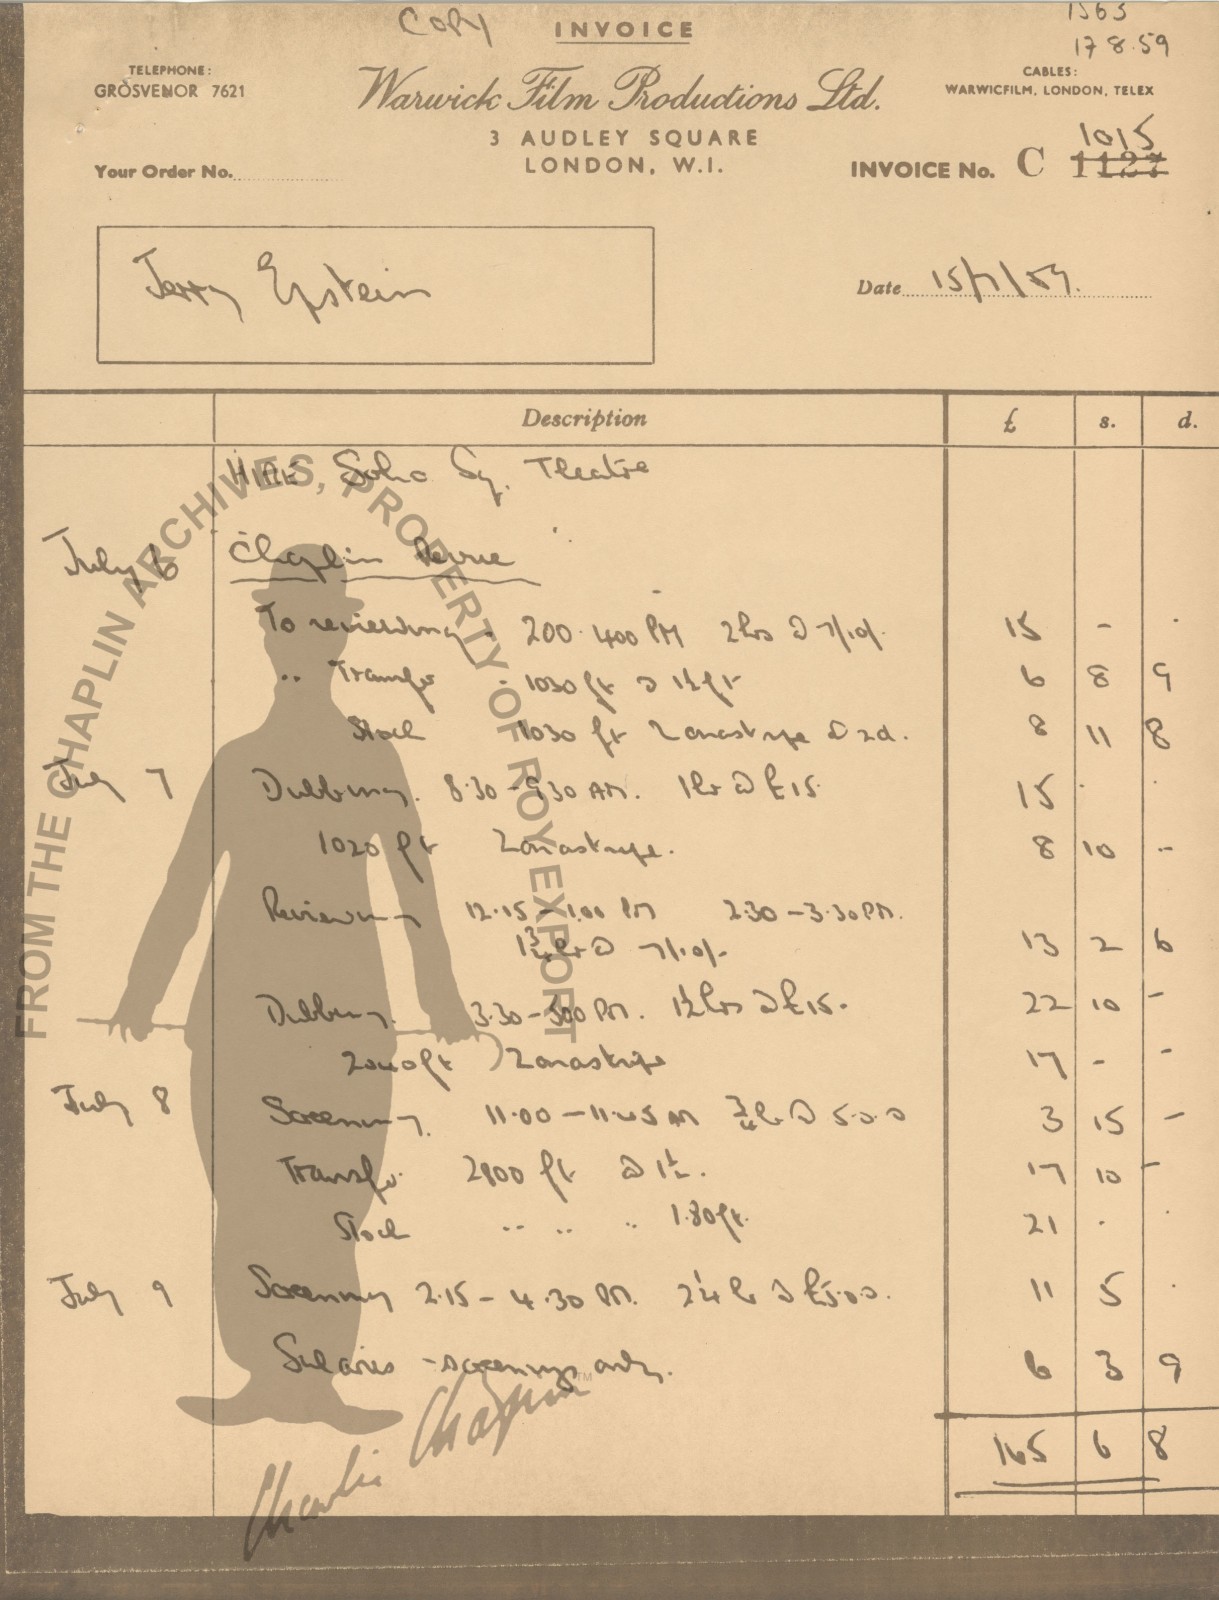 Copy INVOICE 1563
17 8.59
TELEPHONE:
GROSVENOR 7621
Warwick Film Productions Ltd.
CABLES:
WARWICFILM, LONDON, TELEX
3 AUDLEY SQUARE
LONDON, W.1.
Your Order No.
1015
INVOICE No. C 1127
Jerry Epstein
Date 15/7/59.
Description £ s. d.
HIRE Soho Sq. Theatre
July 6 Chaplin Revue
To reviewing . 200 - 400 PM 2 hrs @ 7/10/. 15 - .
.. Transfer - 1030 ft @ 1½ ft 6 8 9
Stock 1030 ft Zonastripe @ 2d. 8 11 8
July 7 Dubbing. 8.30 - 9.30 AM. 1 hr @ £15. 15 . .
1020 ft Zonastripe. 8 10 -
Reviewing 12.15 - 1.00 PM 2.30 - 3.30 PM.
1¾ hr @ 7/10/. 13 2 6
Dubbing. 3.30 - 500 PM. 1½ hrs @ £15. 22 10 -
2040 ft Zonastripe 17 - -
July 8 Screening. 11.00 - 11.45 AM ¾ hr @ 5.0.0 3 15 -
Transfer 2800 ft @ 1½. 17 10 -
Stock .. .. .. 1.80 ft. 21 . .
July 9 Screening 2.15 - 4.30 PM. 2¼ hr @ £5.0.0. 11 5 .
Salaries - screenings only. 6 3 9
165 6 8
FROM THE CHAPLIN ARCHIVES, PROPERTY OF ROY EXPORT
Charlie Chaplin ™